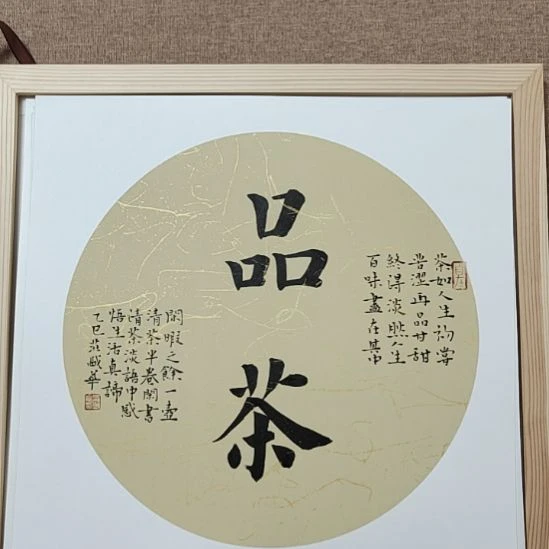 品茶
茶如人生初嘗
苦澀再品甘甜
終得淡然人生
百味盡在其中
閑暇之餘一壺
清茶半卷閑書
清茶淡語中感
悟生活真諦
乙巳